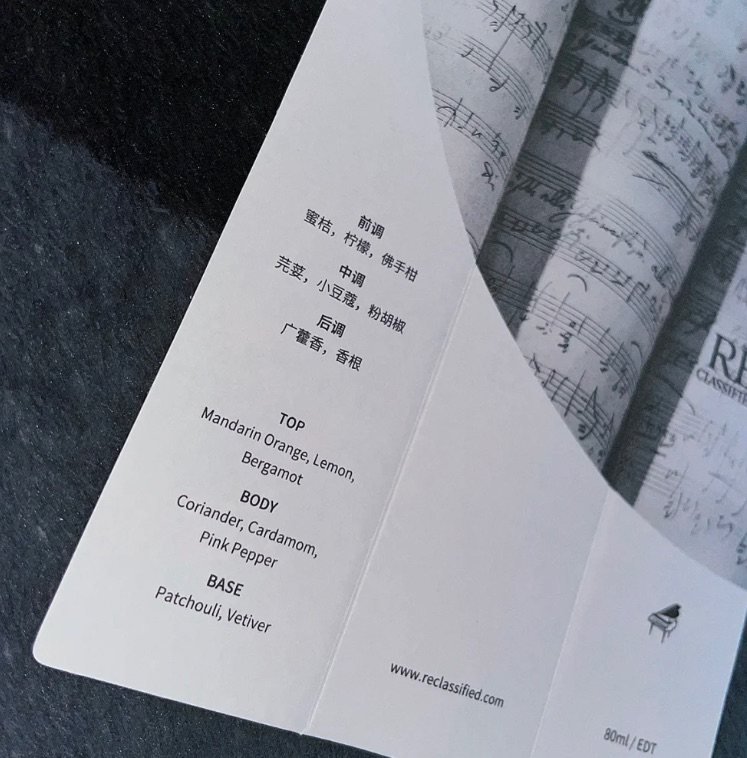 前调
蜜桔，柠檬，佛手柑
中调
芫荽，小豆蔻，粉胡椒
后调
广藿香，香根
TOP
Mandarin Orange, Lemon,
Bergamot
BODY
Coriander, Cardamom,
Pink Pepper
BASE
Patchouli, Vetiver
www.reclassified.com
80ml / EDT
RE
CLASSIFIE